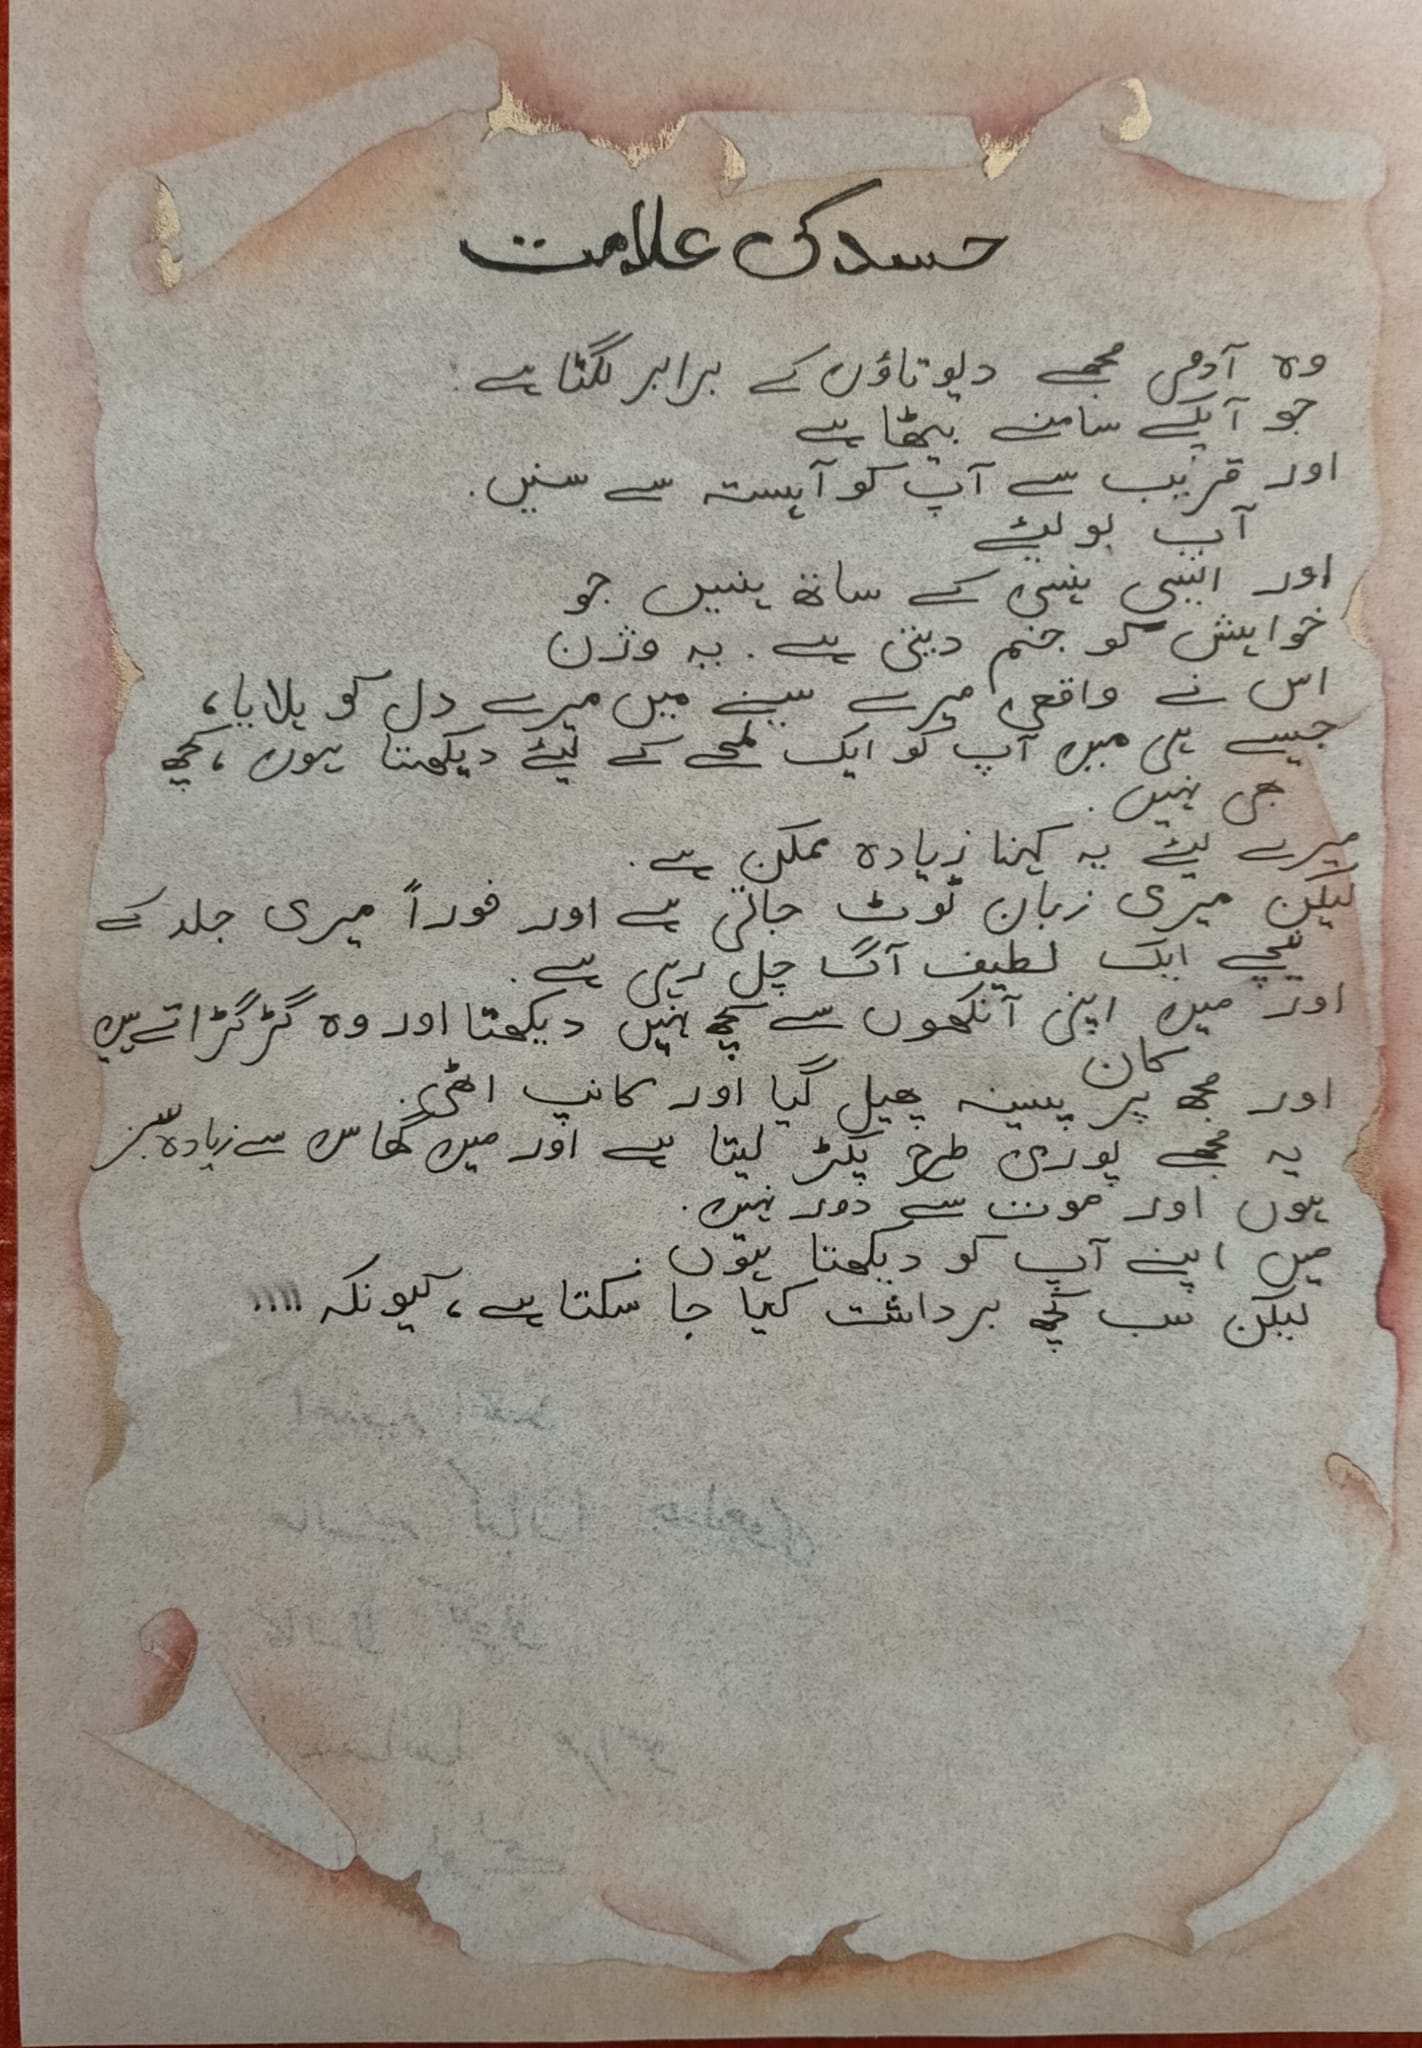 حسد کی علامت
وہ آدمی مجھے دیوتاؤں کے برابر لگتا ہے
جو آپکے سامنے بیٹھا ہے
اور قریب سے آپ کو آہستہ سے سنیں.
آپ بولیئے
اور ایسی ہنسی کے ساتھ ہنسیں جو
خواہش کو جنم دیتی ہے. یہ وژن
اس نے واقعی میرے سینے میں میرے دل کو ہلایا،
جیسے ہی میں آپ کو ایک لمحے کے لیئے دیکھتا ہوں، کچھ
جی نہیں.
میرے لیئے یہ کہنا زیادہ ممکن ہے.
لیکن میری زبان ٹوٹ جاتی ہے اور فوراً میری جلد کے
نیچے ایک لطیف آگ چل رہی ہے.
اور میں اپنی آنکھوں سے کچھ نہیں دیکھتا اور وہ گڑگڑاتے ہیں
کان
اور مجھ پر پسینہ پھیل گیا اور کانپ اٹھی.
یہ مجھے پوری طرح پکڑ لیتا ہے اور میں گھاس سے زیادہ سبز
ہوں اور موت سے دور نہیں.
میں اپنے آپ کو دیکھتا ہوں.
لیکن سب کچھ برداشت کیا جا سکتا ہے، کیونکہ ،،،،